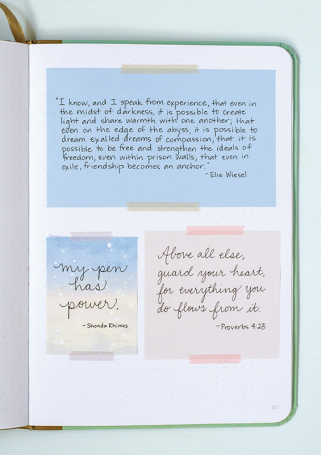 "I know, and I speak from experience, that even in
the midst of darkness, it is possible to create
light and share warmth with one another; that
even on the edge of the abyss, it is possible to
dream exalted dreams of compassion; that it is
possible to be free and strengthen the ideals of
freedom, even within prison walls; that even in
exile, friendship becomes an anchor."
- Elie Wiesel
my pen
has
power.
- Shonda Rhimes
Above all else,
guard your heart,
for everything you
do flows from it.
- Proverbs 4:23